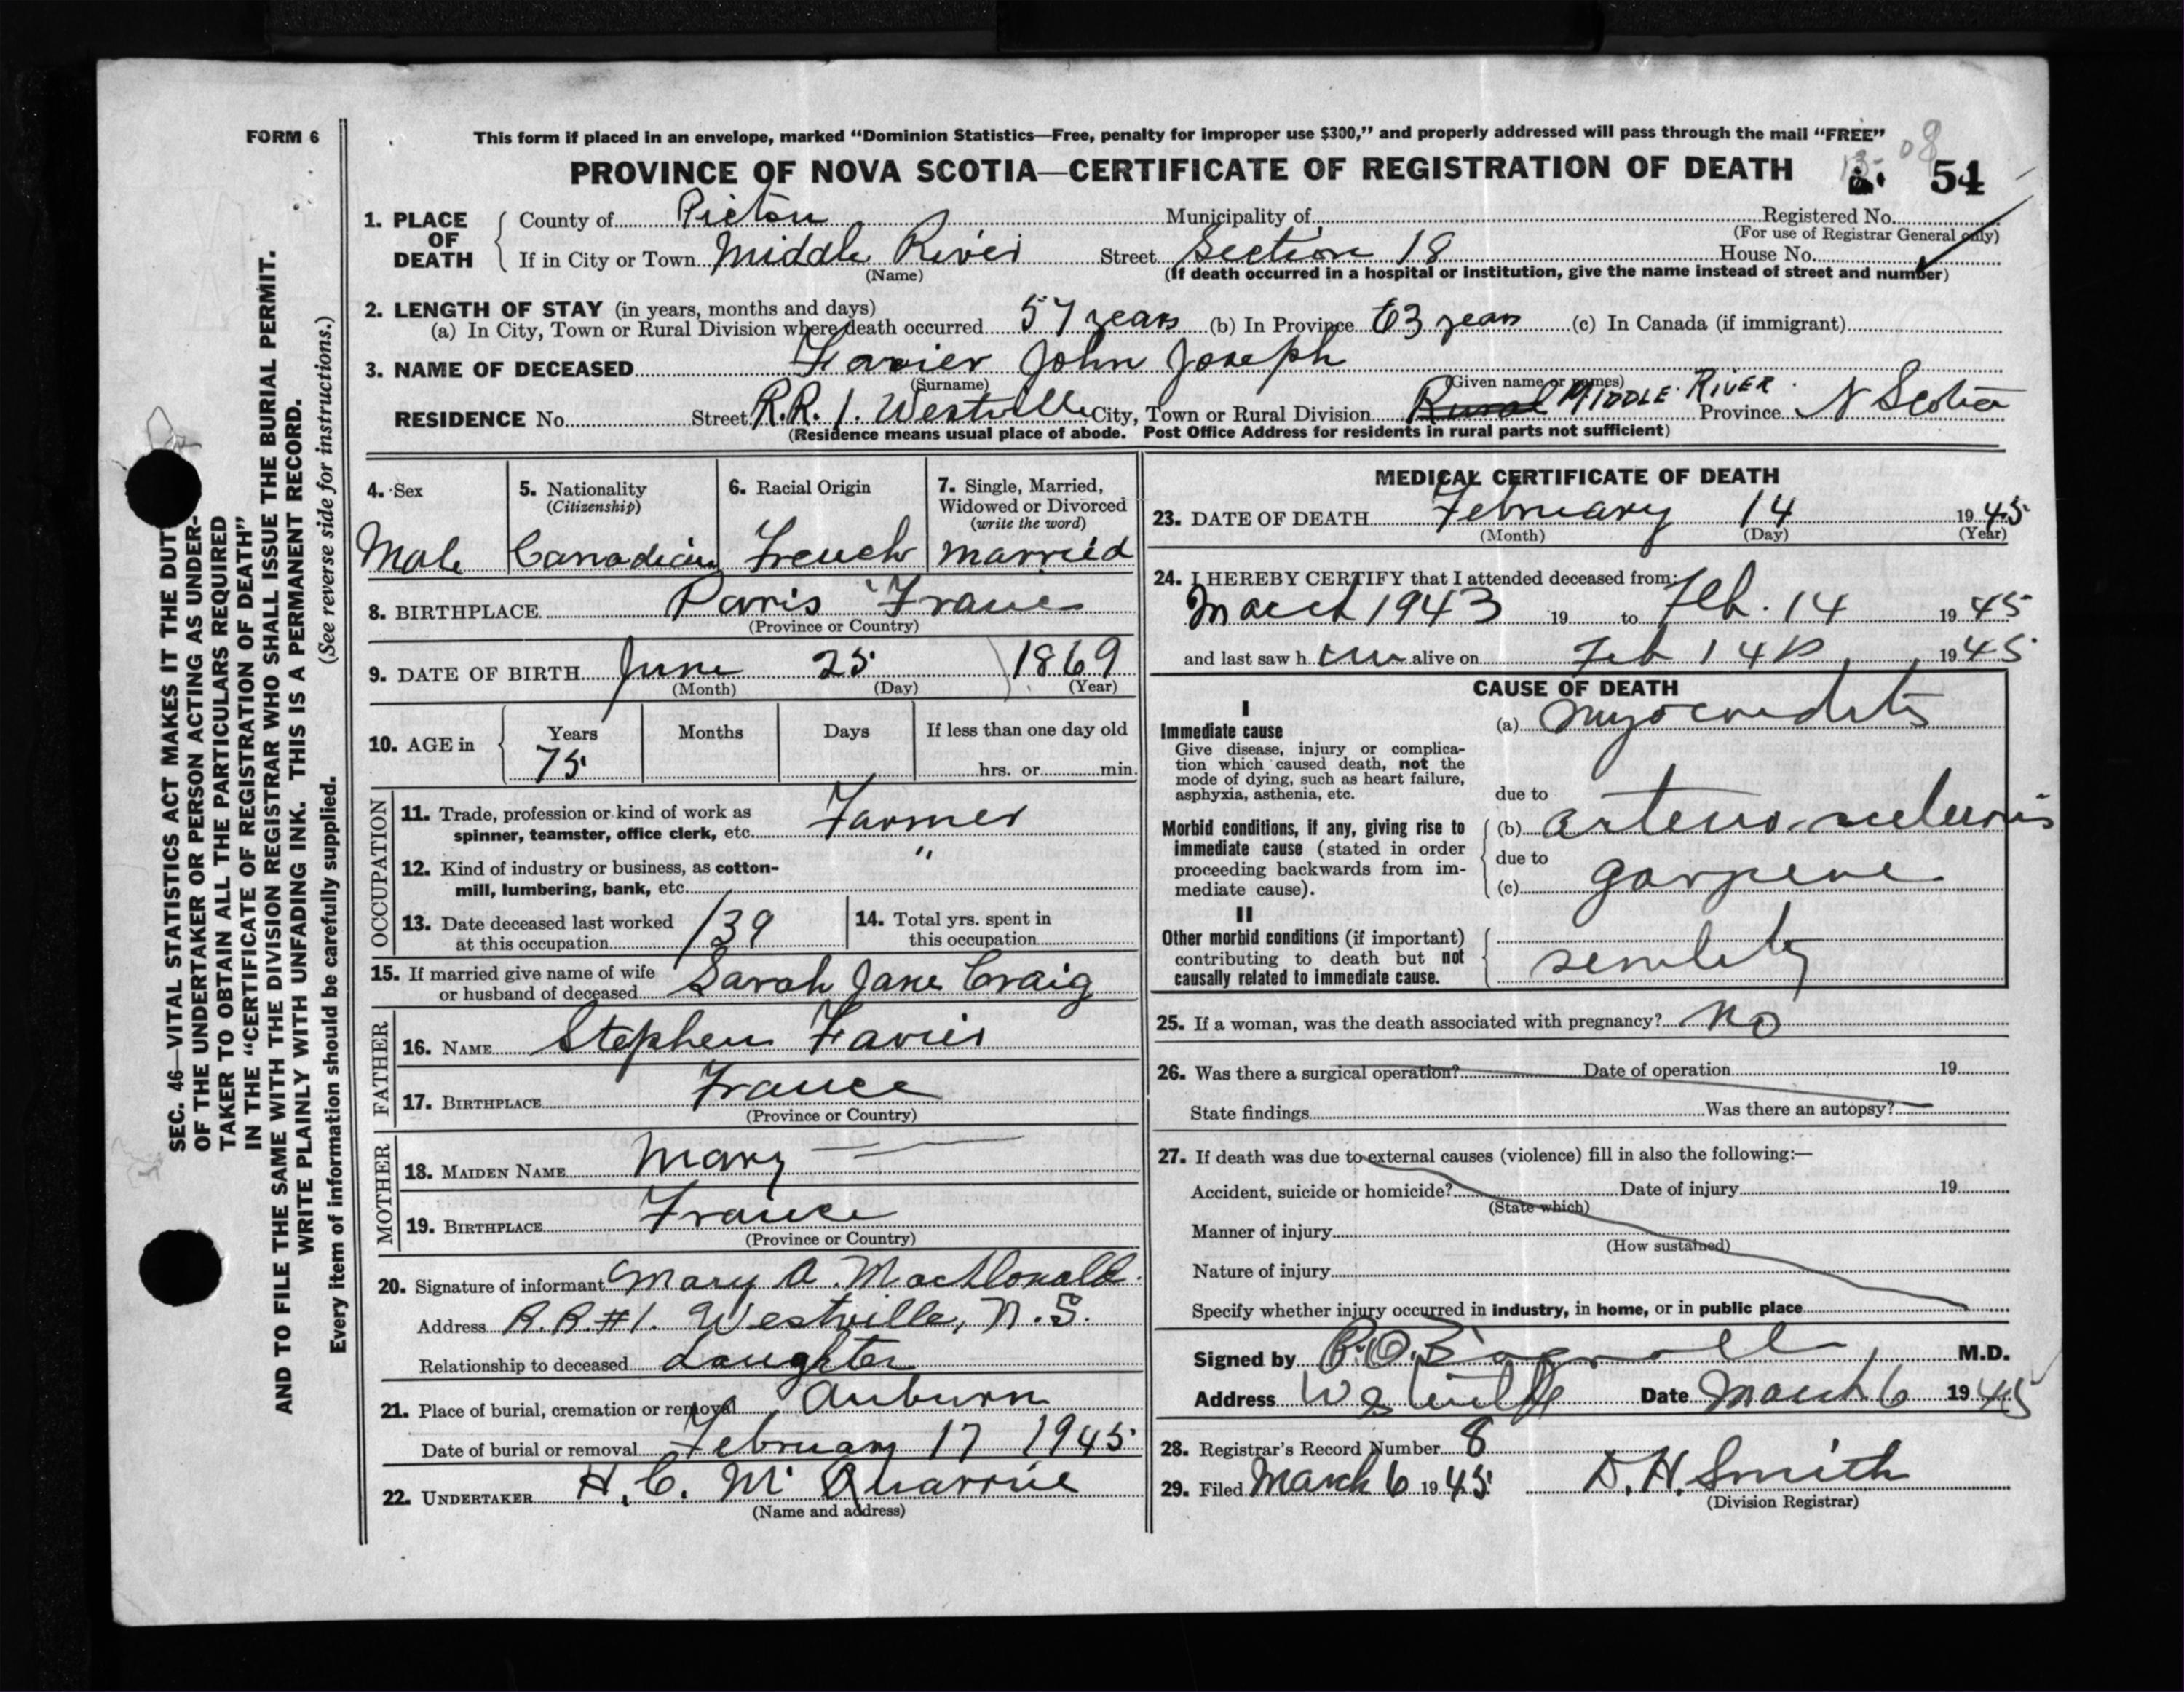 FORM 6
This form if placed in an envelope, marked “Dominion Statistics—Free, penalty for improper use $300,” and properly addressed will pass through the mail “FREE”
PROVINCE OF NOVA SCOTIA—CERTIFICATE OF REGISTRATION OF DEATH
54
1. PLACE OF DEATH
County of Pictou Municipality of Registered No.
(For use of Registrar General only)
If in City or Town Middle River Street Section 18 House No.
(Name) (If death occurred in a hospital or institution, give the name instead of street and number)
2. LENGTH OF STAY (in years, months and days)
(a) In City, Town or Rural Division where death occurred 57 years (b) In Province 63 years (c) In Canada (if immigrant)
3. NAME OF DECEASED Favier John Joseph
(Surname) (Given name or names)
RESIDENCE No. Street R.R. 1. Westville City, Town or Rural Division Rural MIDDLE RIVER. Province N Scotia
(Residence means usual place of abode. Post Office Address for residents in rural parts not sufficient)
SEC. 46—VITAL STATISTICS ACT MAKES IT THE DUTY
OF THE UNDERTAKER OR PERSON ACTING AS UNDER-
TAKER TO OBTAIN ALL THE PARTICULARS REQUIRED
IN THE “CERTIFICATE OF REGISTRATION OF DEATH”
AND TO FILE THE SAME WITH THE DIVISION REGISTRAR WHO SHALL ISSUE THE BURIAL PERMIT.
WRITE PLAINLY WITH UNFADING INK. THIS IS A PERMANENT RECORD.
Every item of information should be carefully supplied. (See reverse side for instructions.)
4. Sex 5. Nationality 6. Racial Origin 7. Single, Married,
(Citizenship) Widowed or Divorced
(write the word)
Male Canadian French Married
8. BIRTHPLACE Paris France
(Province or Country)
9. DATE OF BIRTH June 25 1869
(Month) (Day) (Year)
10. AGE in Years Months Days If less than one day old
75 hrs. or min.
OCCUPATION
11. Trade, profession or kind of work as
spinner, teamster, office clerk, etc. Farmer
12. Kind of industry or business, as cotton-
mill, lumbering, bank, etc. "
13. Date deceased last worked
at this occupation 139
14. Total yrs. spent in
this occupation
15. If married give name of wife
or husband of deceased Sarah Jane Craig
FATHER
16. NAME Stephen Favier
17. BIRTHPLACE France
(Province or Country)
MOTHER
18. MAIDEN NAME Mary —
19. BIRTHPLACE France
(Province or Country)
20. Signature of informant Mary A. MacDonald.
Address R.R.#1. Westville, N.S.
Relationship to deceased daughter
21. Place of burial, cremation or removal Auburn
Date of burial or removal February 17 1945
22. UNDERTAKER H. C. Mc Quarrie
(Name and address)
MEDICAL CERTIFICATE OF DEATH
23. DATE OF DEATH February 14 1945
(Month) (Day) (Year)
24. I HEREBY CERTIFY that I attended deceased from:
March 1943 19 to Feb. 14 1945
and last saw h im alive on Feb 14 1945
CAUSE OF DEATH
I
Immediate cause
Give disease, injury or complica-
tion which caused death, not the
mode of dying, such as heart failure,
asphyxia, asthenia, etc.
(a) Myocarditis
due to
Morbid conditions, if any, giving rise to
immediate cause (stated in order
proceeding backwards from im-
mediate cause).
(b) arterio-sclerosis
due to
(c)
II
Other morbid conditions (if important)
contributing to death but not
causally related to immediate cause.
senility
25. If a woman, was the death associated with pregnancy? No
26. Was there a surgical operation? Date of operation 19
State findings Was there an autopsy?
27. If death was due to external causes (violence) fill in also the following:—
Accident, suicide or homicide? Date of injury 19
(State which)
Manner of injury
(How sustained)
Nature of injury
Specify whether injury occurred in industry, in home, or in public place
Signed by Bagnall M.D.
Address Westville Date March 6 1945
28. Registrar's Record Number 8
29. Filed March 6 1945 D. H. Smith
(Division Registrar)